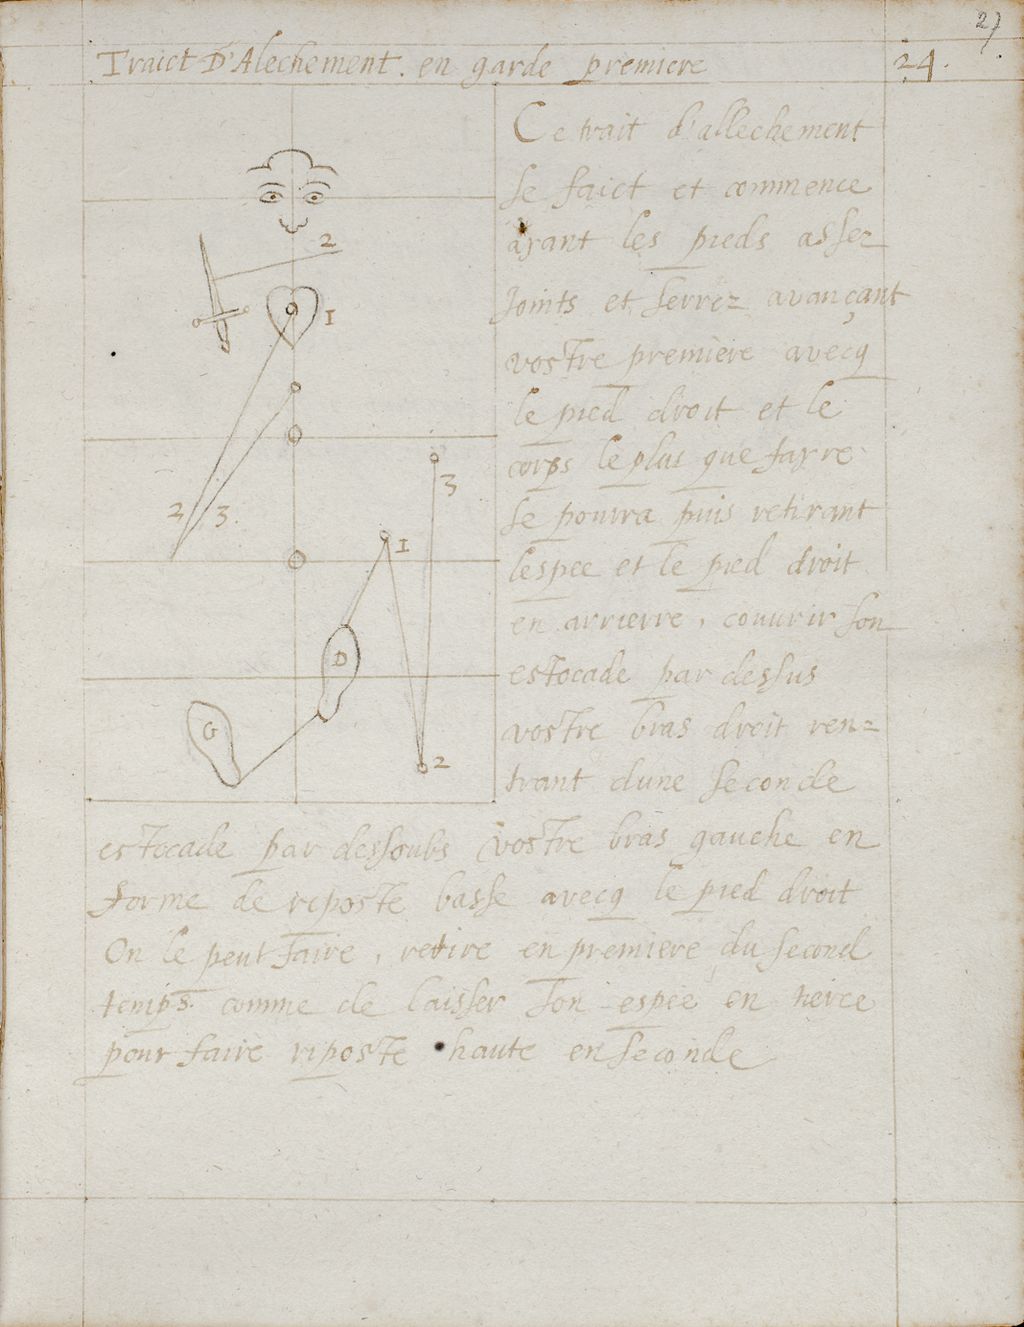 27
Traict D'Alechement. en garde premiere 24.
Ce trait d'allechement
se faict et commence
ayant les pieds assez
Joints et serrez avançant
vostre premiere avecq
le pied droit et le
corps le plus que fayre
se pourra puis retirant
lespee et le pied droit
en arrierre, couvrir son
estocade par dessus
vostre bras droit ren=
trant dune seconde
estocade par dessoubs vostre bras gauche en
forme de riposte basse avecq le pied droit
On le peut faire, retire en premiere du second
temps. comme de laisser son espee en tierce
pour faire riposte haute en seconde
2
1
2 3.
3
1
D
G
2